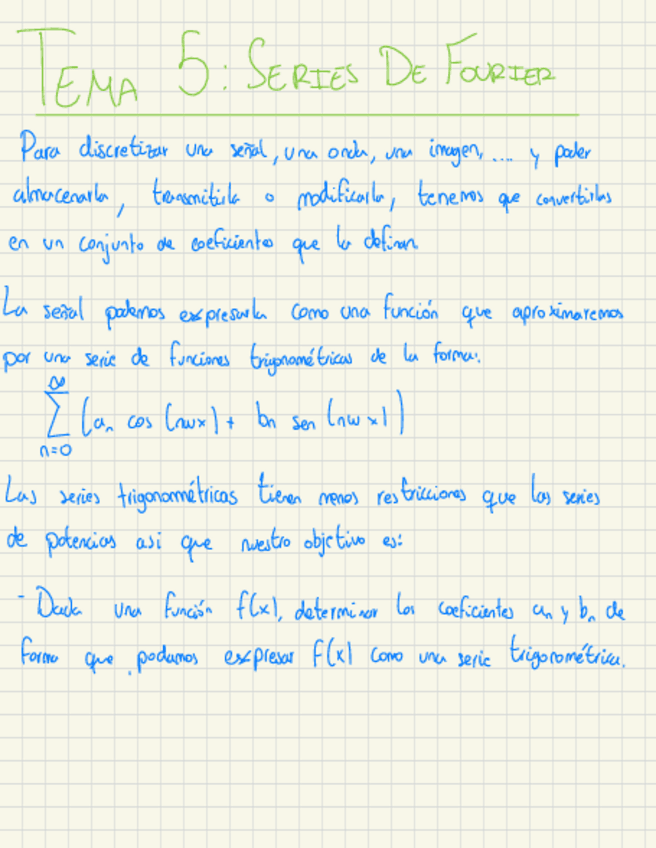 TEMA 5: SERIES DE FOURIER
Para discretizar una señal, una onda, una imagen, .... y poder
almacenarla, transmitirla o modificarla, tenemos que convertirlas
en un conjunto de coeficientes que la definan.
La señal podemos expresarla como una función que aproximaremos
por una serie de funciones trigonométricas de la forma:
∞
∑ (aₙ cos (nwx) + bₙ sen (nwx))
n=0
Las series trigonométricas tienen menos restricciones que las series
de potencias asi que nuestro objetivo es:
- Dada una función f(x), determinar los coeficientes aₙ y bₙ de
forma que podamos expresar f(x) como una serie trigonométrica.